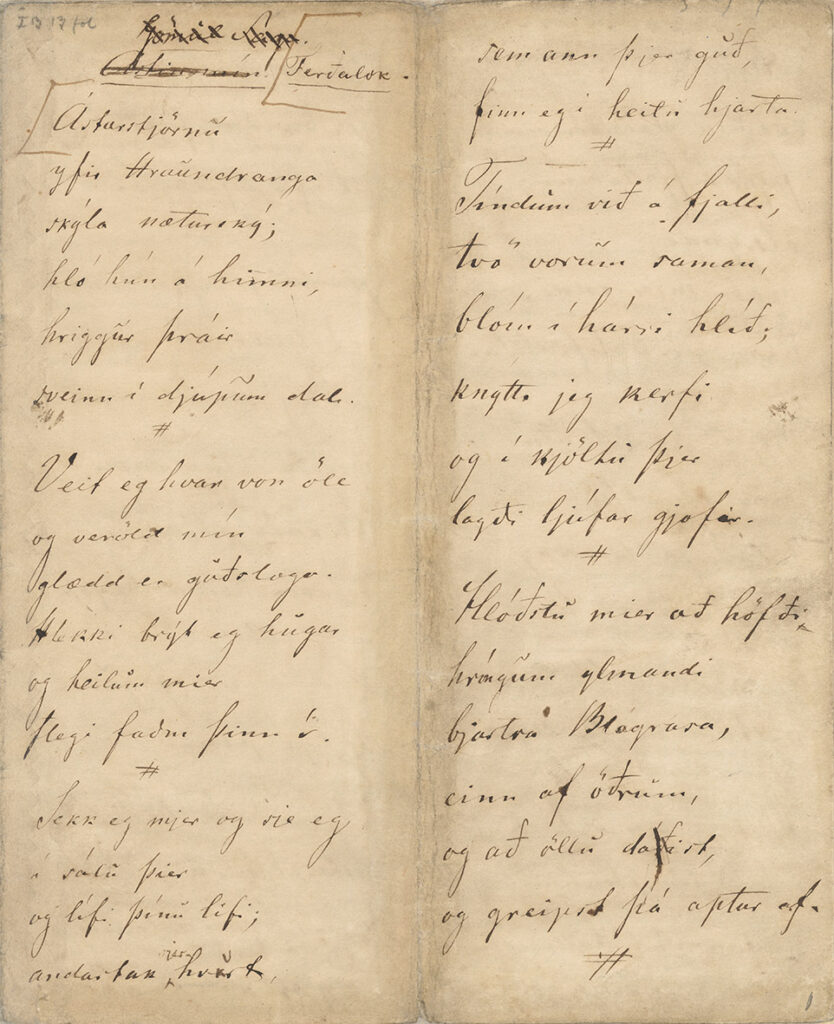 ÍB 13 fol
Gömul saga.
Ástin mín. Ferðalok.
Ástarstjörnu
yfir Hraundranga
skýla næturský;
hló hún á himni,
hriggur þráir
sveinn í djúpum dali.
#
Veit eg hvar von öll
og veröld mín
glædd er guðsloga.
Hlekki brýt eg hugar
og heilum mier
fleygi faðm þinn í.
#
Sekk eg mjer og sje eg
í sálu þier
og lífi þínu lifi;
andartak sier hvört,
sem ann þjer guð,
finn eg í heitu hjarta.
#
Tíndum við á fjalli,
tvö vorum saman,
blóm í hárri hlíð;
knytti jeg kerfi
og í kjöltu þjer
lagði ljúfar gjafir.
#
Hlóðstu mier að höfði
hríngum ylmandi
bjartra Blágrasa,
einn af öðrum,
og að öllu dáðist,
og greipst þá aptur af.
#
1